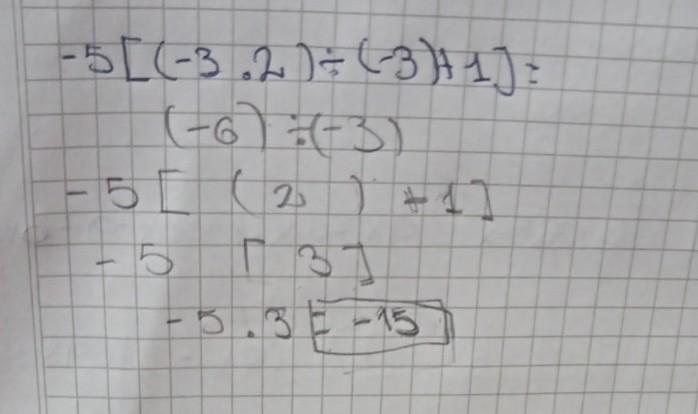 -5[(-3.2)÷(-3)+1]=
(-6)÷(-3)
-5[(2)+1]
-5[3]
-5.3=-15